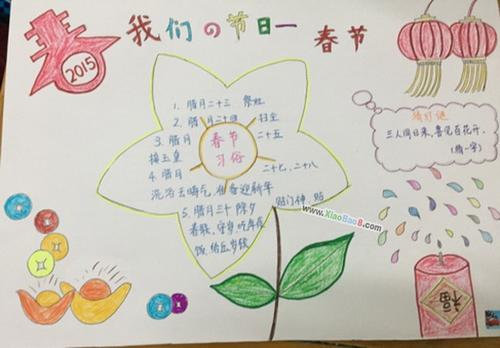 春
2015
我们の节日一
春节
春节
习俗
1. 腊月二十三 祭灶
2. 腊月二十四 扫尘
3. 腊月 二十五
接玉皇
4. 腊月 二十七、二十八
洗浴去晦气,准备迎新年
5. 腊月三十 除夕 贴门神、贴
春联,守岁吃年夜
饭,给压岁钱
猜灯谜
三人同日来,喜见百花开。
(猜一字)
www.XiaoBao8.com
福